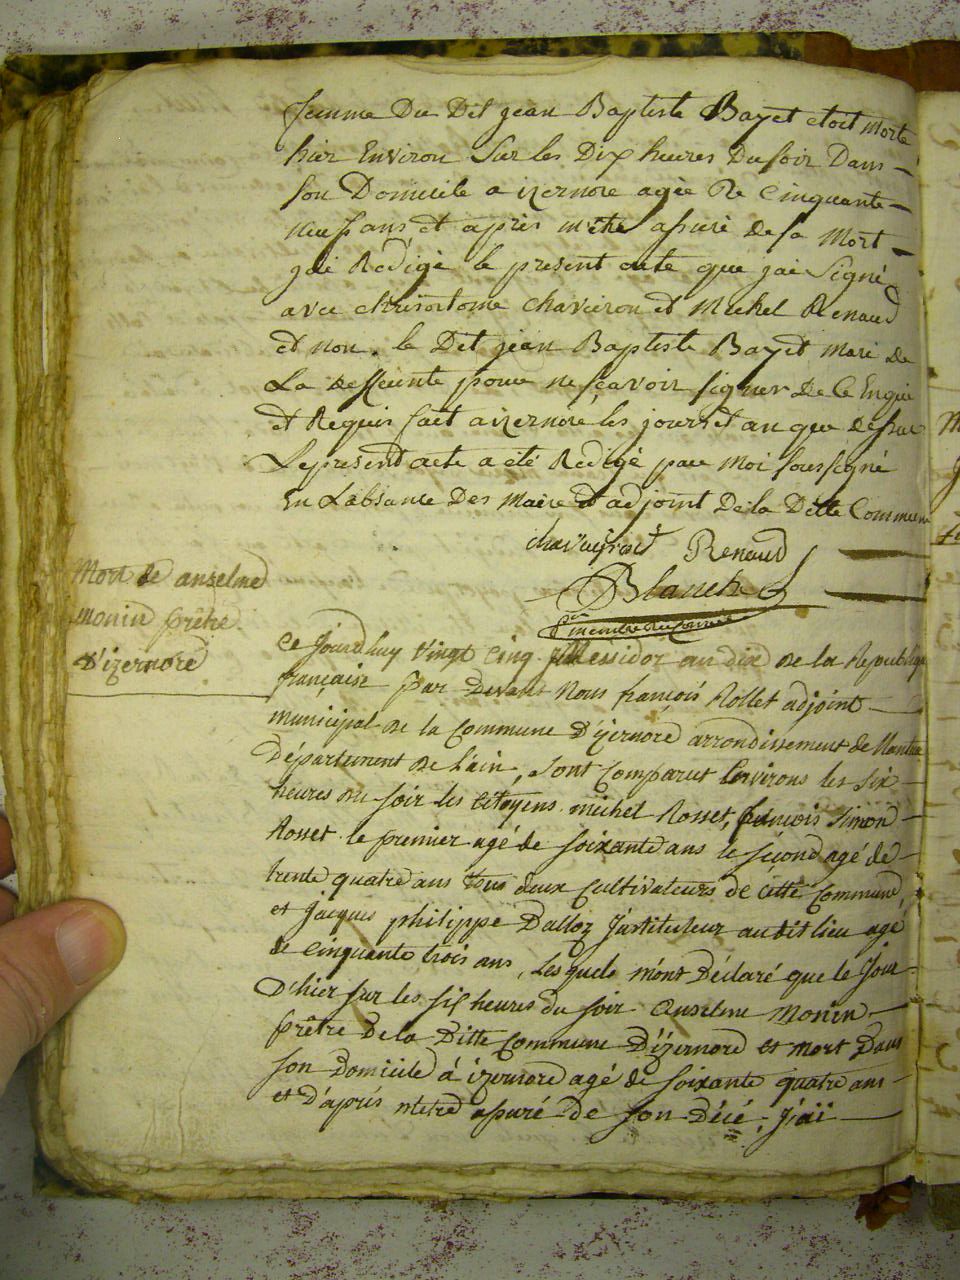 femme Du Dit jean Baptiste Bayet etoit morte
hier Environ Sur les Dix heures Du soir Dans
son Domicile a izernore agée De Cinquante
neuf ans et après m'etre assuré de sa Mort
jai Redigé le present acte que jai Signé
avec chrisostome chaviron et Michel Renaud
et non le Dit jean Baptiste Bayet mari de
La deffeinte pour ne sçavoir signer de ce Enquis
et Requis fait a izernore les jours et an que dessus
Le present acte a été Redigé par Moi soussigné
En L'absance Des maire et adjoint De la Ditte Commune
Renaud
Blanch
Mort de anselme
monin prêtre
D'izernore
Ce jourdhuy Vingt Cinq Messidor an dix de la Republique
française par Devant Nous françois Rollet adjoint
municipal de la Commune D'izernore arrondissement de Nantua
Département de l'ain, sont Comparut Environs les six
heures du soir les Citoyens michel Rosset, françois Simon
Rosset le premier agé de soixante ans le second agé de
trente quatre ans tous deux Cultivateurs de cette Commune,
et Jacques philippe Dalloz Jnstituteur audit lieu agé
de Cinquante trois ans, Les quels m'ont Déclaré que le Jour
D'hier sur les six heures du soir Anselme Monin
prêtre De la Ditte Commune D'izernore et mort Dans
son Domicile à izernore agé de soixante quatre ans
et D'après m'etre assuré de son Décé, J'ai